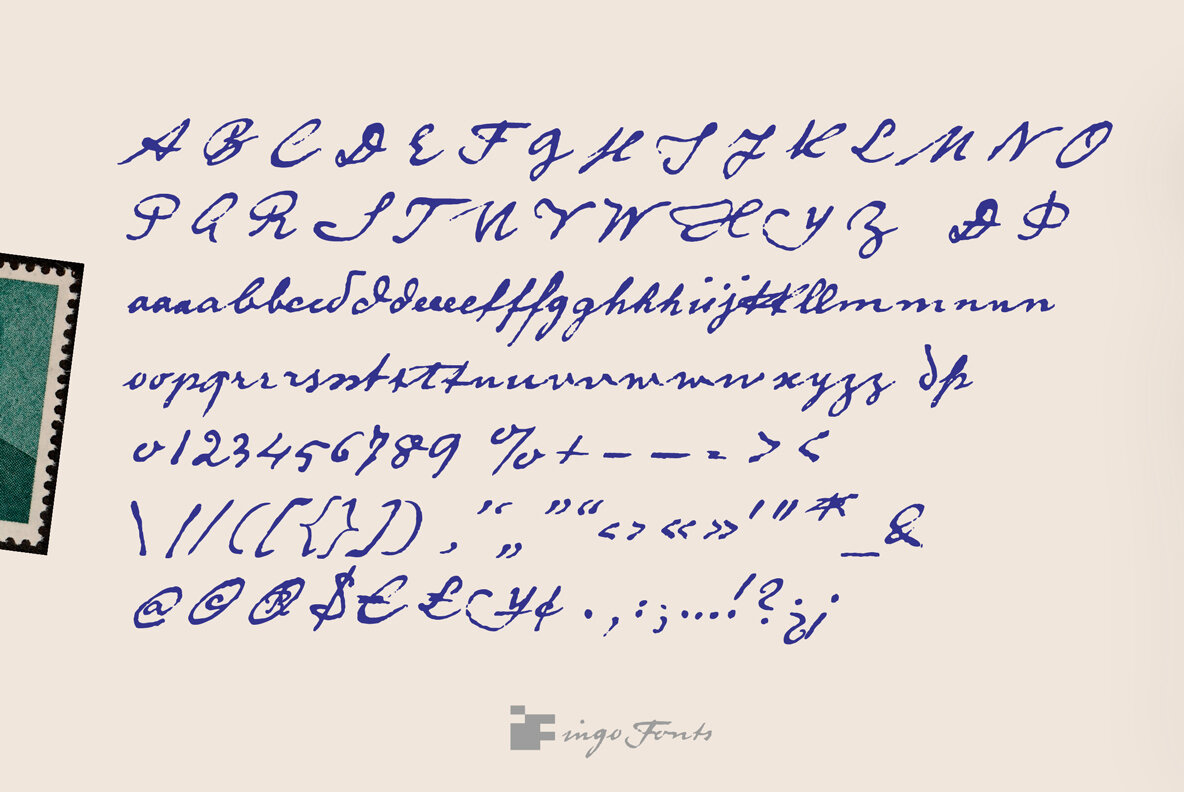 A B C D E F G H I J K L M N O
P Q R S T U V W X Y Z Ð Þ
aaaabbccddddeeeefffggghhhiijjkkllmmnnn
oopqrrrrssstttttuuuvvvwwwxyzzz ðþ
0123456789 %+–—=><
\|/([{}]) , ‘‘ „ ”“‹›«»'"*_&
@©®$€£¥¢·,:;...!?¿¡
ingoFonts